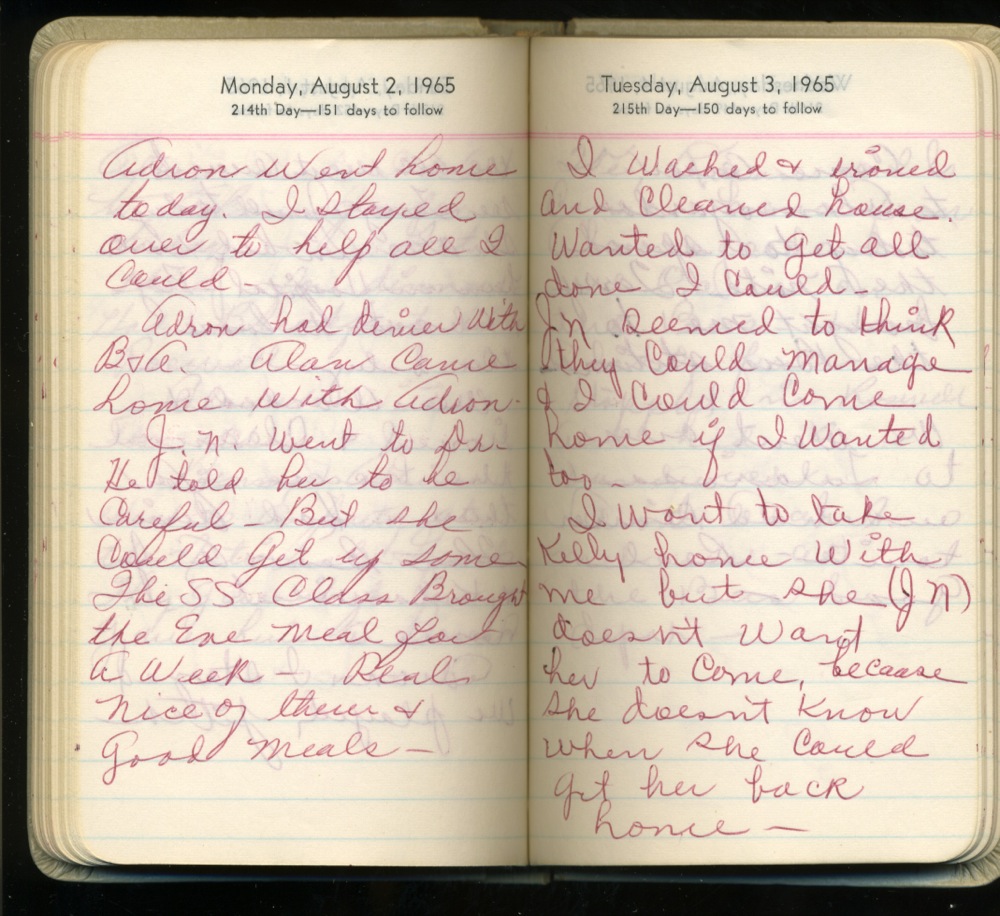 Monday, August 2, 1965
214th Day—151 days to follow
Adron went home
today. I stayed
over to help all I
could -
Adron had diner with
B+A. Alan came
home with Adron.
J. N. went to Dr.
He told her to be
Careful - But she
could get up some
The SS Class Brought
the Eve meal for
a week - Real
nice of them &
Good meals -
Tuesday, August 3, 1965
215th Day—150 days to follow
I Wached & ironed
and cleaned house.
Wanted to get all
done I could -
JN seemed to think
they could manage
& I could come
home if I wanted
too -
I want to take
Kelly home with
me but she (JN)
doesn't want
her to come, because
she doesn't know
when she could
get her back
home -